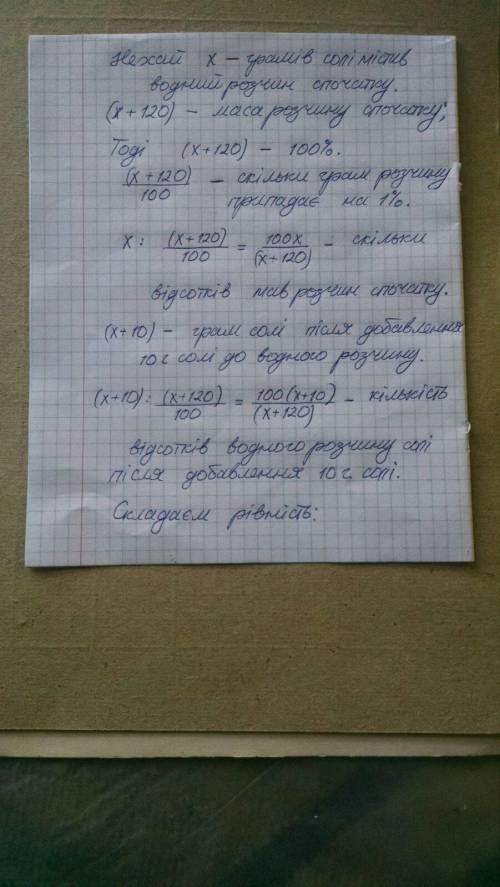 Нехай х – грамів солі містив
водний розчин спочатку.
(х+120) – маса розчину спочатку;
Тоді (х+120) – 100%.
(х+120)/100 – скільки грам розчину
припадає на 1%.
х : (х+120)/100 = 100х/(х+120) – скільки
відсотків мав розчин спочатку.
(х+10) – грам солі після добавлення
10 г солі до водного розчину.
(х+10) : (х+120)/100 = 100(х+10)/(х+120) – кількість
відсотків водного розчину солі
після добавлення 10 г солі.
Складаєм рівність: